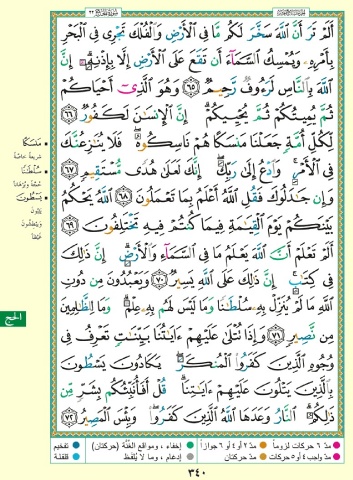 أَلَمْ تَرَ أَنَّ ٱللَّهَ سَخَّرَ لَكُم مَّا فِى ٱلْأَرْضِ وَٱلْفُلْكَ تَجْرِى فِى ٱلْبَحْرِ
بِأَمْرِهِۦ وَيُمْسِكُ ٱلسَّمَآءَ أَن تَقَعَ عَلَى ٱلْأَرْضِ إِلَّا بِإِذْنِهِۦٓ ۗ إِنَّ
ٱللَّهَ بِٱلنَّاسِ لَرَءُوفٌ رَّحِيمٌ ﴿٦٥﴾ وَهُوَ ٱلَّذِىٓ أَحْيَاكُمْ
ثُمَّ يُمِيتُكُمْ ثُمَّ يُحْيِيكُمْ ۗ إِنَّ ٱلْإِنسَٰنَ لَكَفُورٌ ﴿٦٦﴾
لِّكُلِّ أُمَّةٍ جَعَلْنَا مَنسَكًا هُمْ نَاسِكُوهُ ۖ فَلَا يُنَٰزِعُنَّكَ
فِى ٱلْأَمْرِ ۚ وَٱدْعُ إِلَىٰ رَبِّكَ ۖ إِنَّكَ لَعَلَىٰ هُدًى مُّسْتَقِيمٍ ﴿٦٧﴾
وَإِن جَٰدَلُوكَ فَقُلِ ٱللَّهُ أَعْلَمُ بِمَا تَعْمَلُونَ ﴿٦٨﴾ ٱللَّهُ يَحْكُمُ
بَيْنَكُمْ يَوْمَ ٱلْقِيَٰمَةِ فِيمَا كُنتُمْ فِيهِ تَخْتَلِفُونَ ﴿٦٩﴾
أَلَمْ تَعْلَمْ أَنَّ ٱللَّهَ يَعْلَمُ مَا فِى ٱلسَّمَآءِ وَٱلْأَرْضِ ۗ إِنَّ ذَٰلِكَ
فِى كِتَٰبٍ ۚ إِنَّ ذَٰلِكَ عَلَى ٱللَّهِ يَسِيرٌ ﴿٧٠﴾ وَيَعْبُدُونَ مِن دُونِ
ٱللَّهِ مَا لَمْ يُنَزِّلْ بِهِۦ سُلْطَٰنًا وَمَا لَيْسَ لَهُم بِهِۦ عِلْمٌ ۗ وَمَا لِلظَّٰلِمِينَ
مِن نَّصِيرٍ ﴿٧١﴾ وَإِذَا تُتْلَىٰ عَلَيْهِمْ ءَايَٰتُنَا بَيِّنَٰتٍ تَعْرِفُ فِى
وُجُوهِ ٱلَّذِينَ كَفَرُوا۟ ٱلْمُنكَرَ ۖ يَكَادُونَ يَسْطُونَ
بِٱلَّذِينَ يَتْلُونَ عَلَيْهِمْ ءَايَٰتِنَا ۗ قُلْ أَفَأُنَبِّئُكُم بِشَرٍّ مِّن
ذَٰلِكُمُ ۗ ٱلنَّارُ وَعَدَهَا ٱللَّهُ ٱلَّذِينَ كَفَرُوا۟ ۖ وَبِئْسَ ٱلْمَصِيرُ ﴿٧٢﴾
مَنسَكًا
شريعة خاصّة
سُلْطَٰنًا
حجة وبرهانا
يَسْطُونَ
الحج
مدّ ٦ حركات لزوماً
مدّ ٢ أو ٤ أو ٦ جوازاً
إخفاء، ومواقع الغُنَّة (حركتان)
تفخيم
مدّ واجب ٤ أو ٥ حركات
مدّ حركتان
إدغام، وما لا يُلفظ
قلقلة
٣٤٠